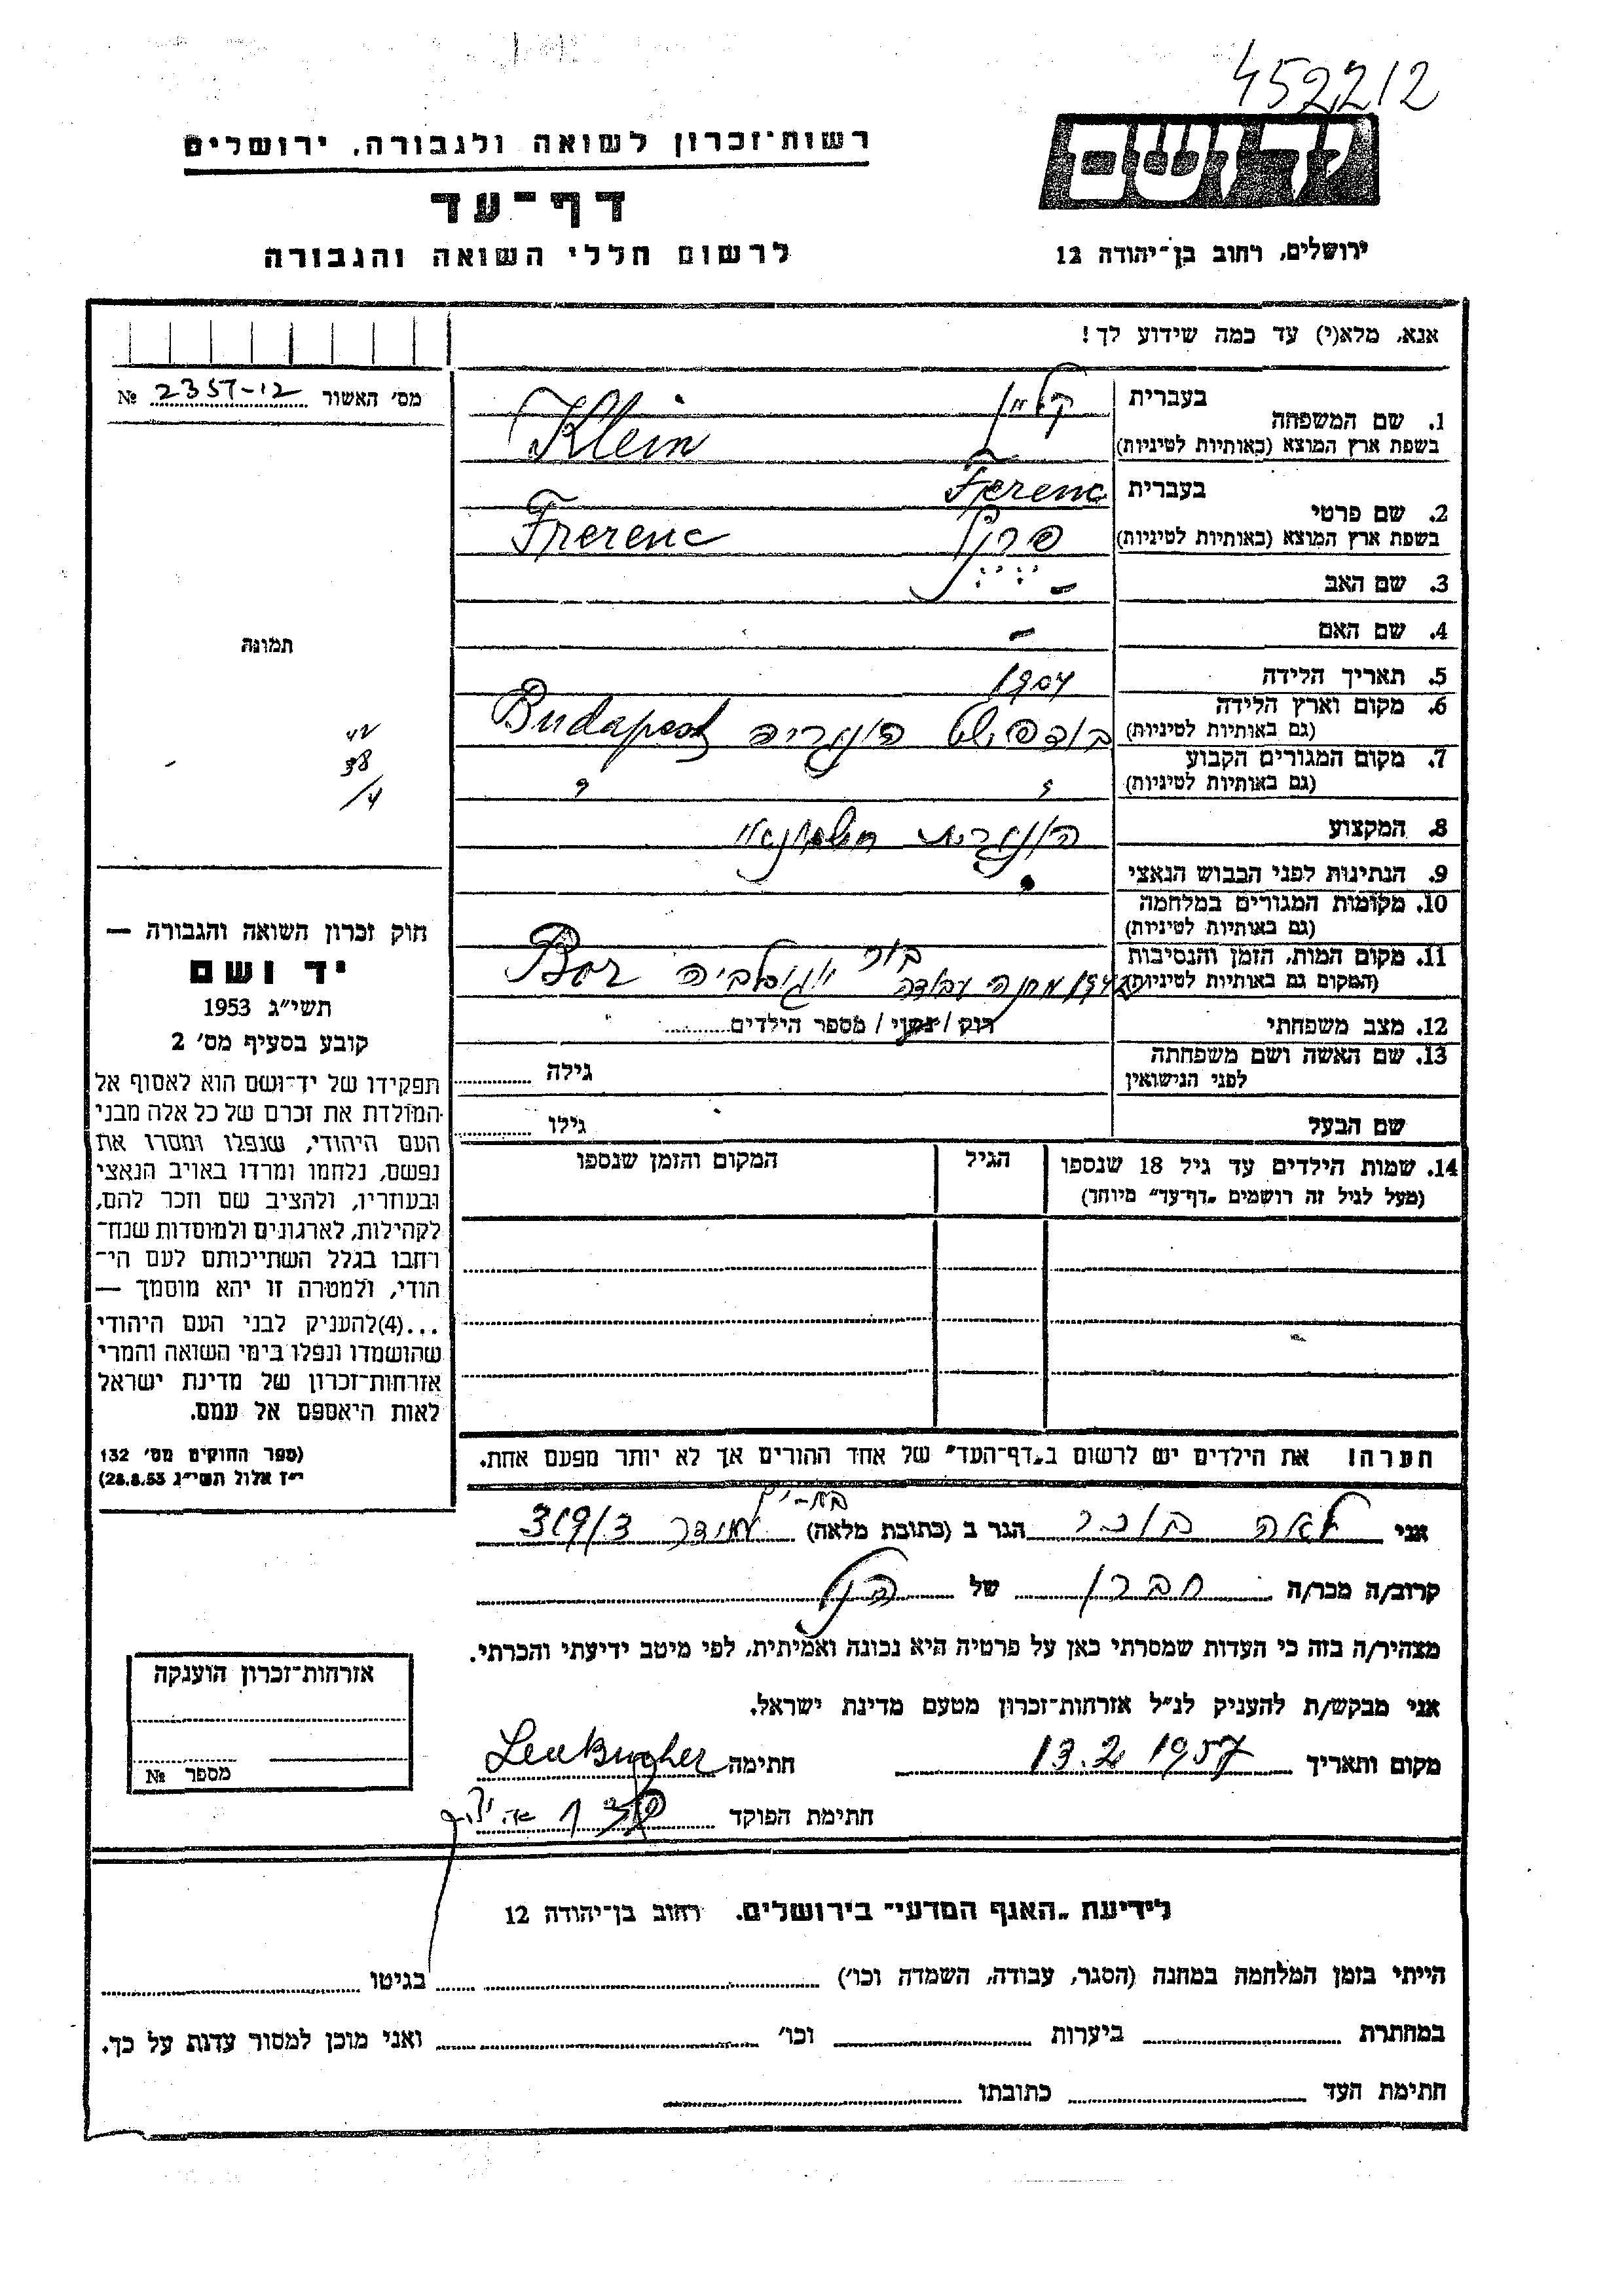 452212
רשות־זכרון לשואה ולגבורה, ירושלים
דף־עד
לרשום חללי השואה והגבורה
יד ושם
ירושלים, רחוב בן־יהודה 12
אנא, מלא(י) עד כמה שידוע לך!
מס׳ האשור № 2357-12
תמונה
42
38
/4
חוק זכרון השואה והגבורה —
יד ושם
תשי״ג 1953
קובע בסעיף מס׳ 2
תפקידו של יד־ושם הוא לאסוף אל
המולדת את זכרם של כל אלה מבני
העם היהודי, שנפלו ומסרו את
נפשם, נלחמו ומרדו באויב הנאצי
ובעוזריו, ולהציב שם וזכר להם,
לקהילות, לארגונים ולמוסדות שנח־
רחבו בגלל השתייכותם לעם הי־
הודי, ולמטרה זו יהא מוסמך —
...(4)להעניק לבני העם היהודי
שהושמדו ונפלו בימי השואה והמרי
אזרחות־זכרון של מדינת ישראל
לאות היאספם אל עמם.
(ספר החוקים מס׳ 132
י״ז אלול תשי״ג 28.8.53)
1. שם המשפחה
בעברית
בשפת ארץ המוצא (באותיות לטיניות) Klein
2. שם פרטי
בעברית Ferenc
בשפת ארץ המוצא (באותיות לטיניות) פרנץ Frerenc
3. שם האב –
4. שם האם –
5. תאריך הלידה 1904
6. מקום וארץ הלידה
(גם באותיות לטיניות) בודפשט הונגריה Budapest
7. מקום המגורים הקבוע
(גם באותיות לטיניות) ? ?
8. המקצוע הונגרית
9. הנתינות לפני הכבוש הנאצי
10. מקומות המגורים במלחמה
(גם באותיות לטיניות)
11. מקום המות, הזמן והנסיבות
(המקום גם באותיות לטיניות) מחנה עבודה בור יוגוסלביה Bor
12. מצב משפחתי רוק / נשוי / מספר הילדים
13. שם האשה ושם משפחתה
לפני הנישואין
גילה
שם הבעל גילו
14. שמות הילדים עד גיל 18 שנספו
(מעל לגיל זה רושמים „דף־עד״ מיוחד)
הגיל
המקום והזמן שנספו
הערה! את הילדים יש לרשום ב„דף־העד״ של אחד ההורים אך לא יותר מפעם אחת.
בת-ים
אני לאה בוכר הגר ב (כתובת מלאה) עמידר 319/3
קרוב/ה מכר/ה חברו של הנ״ל
מצהיר/ה בזה כי העדות שמסרתי כאן על פרטיה היא נכונה ואמיתית, לפי מיטב ידיעתי והכרתי.
אני מבקש/ת להעניק לנ״ל אזרחות־זכרון מטעם מדינת ישראל.
מקום ותאריך 13.2 1957 חתימה Lea Bucher
חתימת הפוקד
אזרחות־זכרון הוענקה
מספר №
לידיעת „האגף המדעי״ בירושלים, רחוב בן־יהודה 12
הייתי בזמן המלחמה במחנה (הסגר, עבודה, השמדה וכו׳) בגיטו
במחתרת ביערות וכו׳ ואני מוכן למסור עדות על כך.
חתימת העד כתובתו